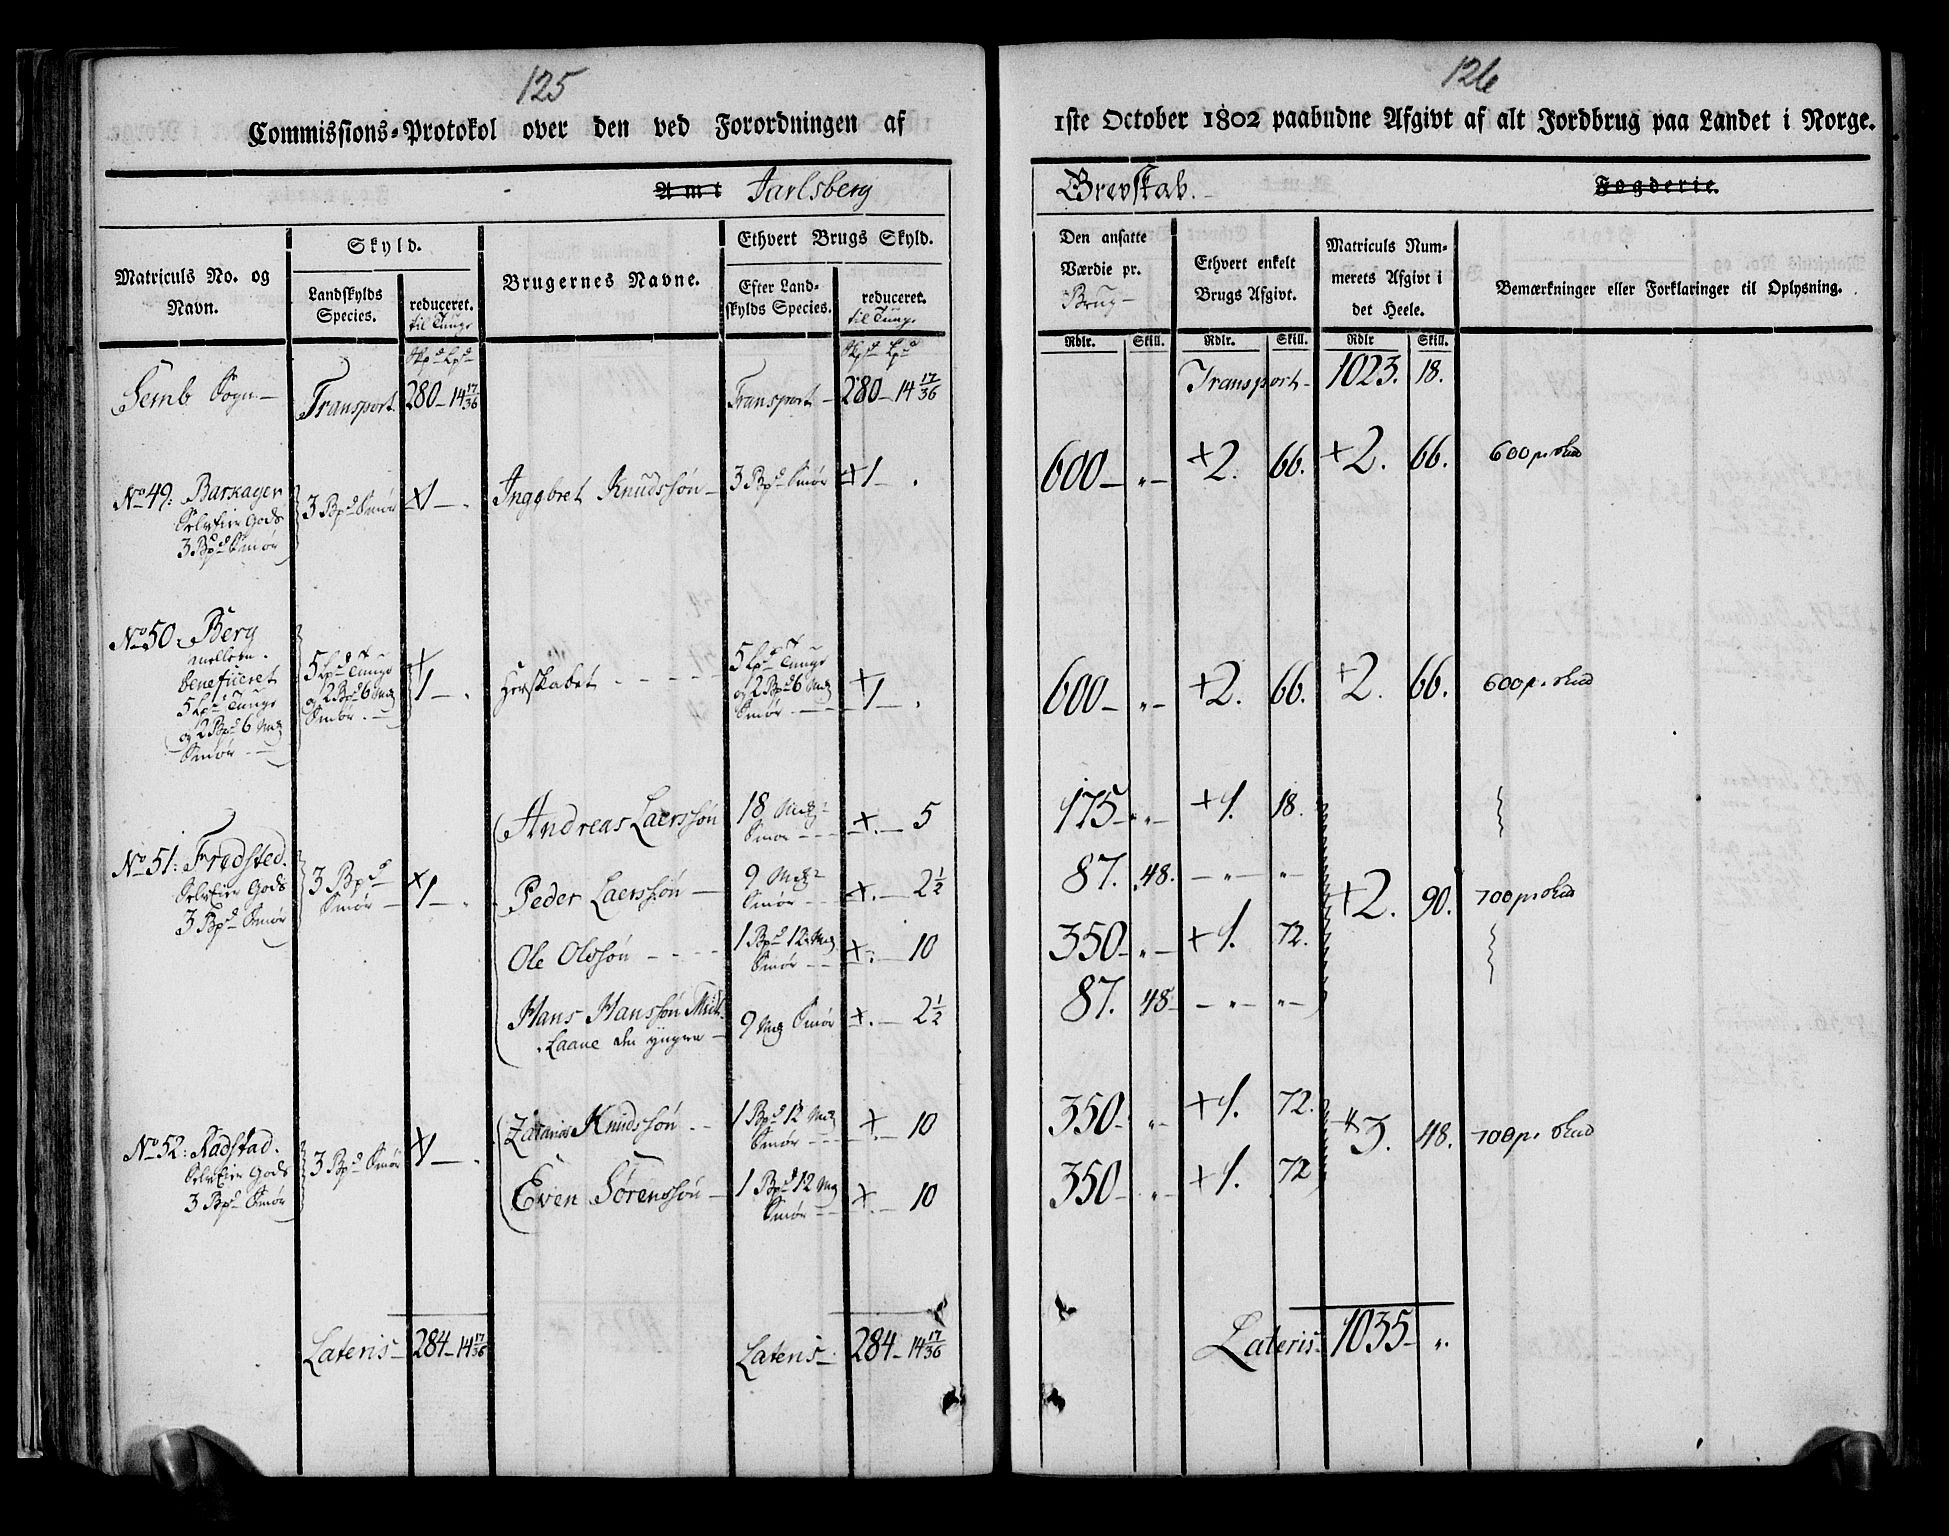 125
Commissions-Protokol over den ved Forordningen af
Amt Jarlsberg
Matriculs No. og Navn.
Skyld.
Landskylds Species.
reduceret. til Tunge
Brugernes Navne.
Ethvert Brugs Skyld.
Efter Landskylds Species.
reduceret. til Tunge
Semb Sogn — Transport 280 — 14 17/36 Transport — 280 — 14 17/36
No 49: Barkager 3 Bpd Smør +1 — . Inggbret Knudssøn — 3 Bpd Smør +1 — .
Selv Eier Gods
3 Bpd Smør
No 50. Berg
Beneficeret
5 Lpd Tunge
og 2 Bpd 6 Mg
Smør
5 Lpd Tunge
og 2 Bpd 6 Mg
Smør
+1 — .
Herskabet
5 Lpd Tunge
og 2 Bpd 6 Mg
Smør
+1 — .
No 51: Fredsted.
Selv Eier Gods
3 Bpd Smør
3 Bpd
Smør
+1 — .
Andreas Laerssøn 18 Mg Smør +. — 5
Peder Laerssøn — 9 Mg Smør +. — 2 1/2
Ole Olssøn 1 Bpd 12 Mg Smør +. — 10
Hans Hanssøn 9 Mg Smør +. — 2 1/2
Laane den yngere —
No 52: Radstad.
Selv Eier Gods
3 Bpd Smør
3 Bpd Smør
+1 — .
Zacarias Knudssøn 1 Bpd 12 Mg Smør +. — 10
Even Sørenssøn — 1 Bpd 12 Mg Smør +. — 10
Lateris — 284 — 14 17/36 Lateris — 284 — 14 17/36
126
1ste October 1802 paabudne Afgivt af alt Jordbrug paa Landet i Norge.
Grevskab. Fogderie.
Den ansatte Værdie pr. Brug —
Ethvert enkelt Brugs Afgivt.
Matriculs Nummerets Afgivt i det Heele.
Bemærkninger eller Forklaringer til Oplysning.
Rdlr. Skill. Rdlr. Skill. Rdlr Skill.
Transport — 1023. 18.
600 — „ — +2. 66. +2. 66. 600 pr Skud
600 — „ — +2. 66. +2. 66. 600 pr. Skud
175 — „ — +1. 18.
87. 48. — „ — „ — +2. 90. 700 pr Skud
350 — „ — +1. 72.
87. 48 — „ — „ —
350 — „ +1. 72. +3. 48. 700 pr Skud
350 — „ — +1. 72
Lateris — 1035 — „